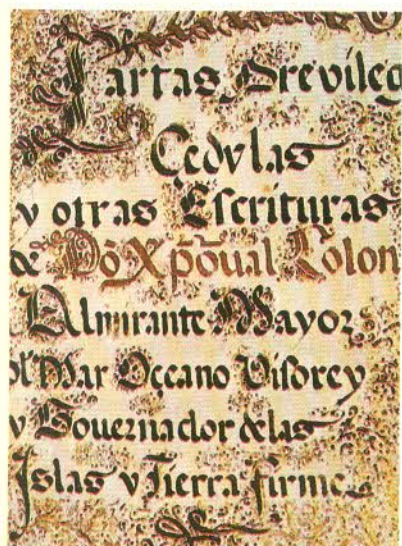 Cartas Previleg
Cedulas
y otras Escrituras
de Dõ Xp̃õual Colon
Almirante Mayor
dl Mar Occeano Visorey
y Gouernador de las
Islas y Tierra firme